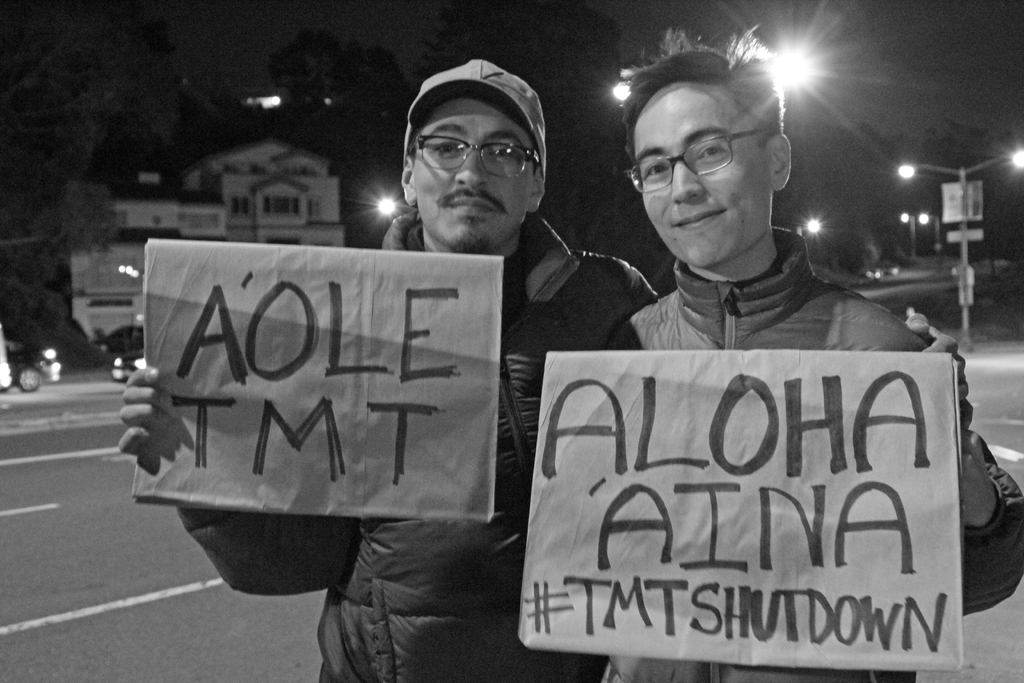 A'OLE
TMT
ALOHA
'AINA
#TMTSHUTDOWN